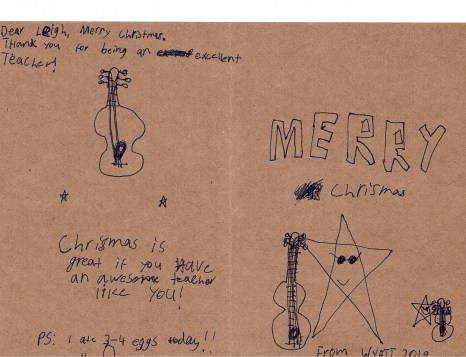 Dear Leigh, Merry Christmas.
Thank you for being an excellent
Teacher!
Chrismas is
great if you Have
an awesome teacher
like YOU!
PS: I ate 3-4 eggs today!!
MERRY
Chrismas
From WYATT 2019